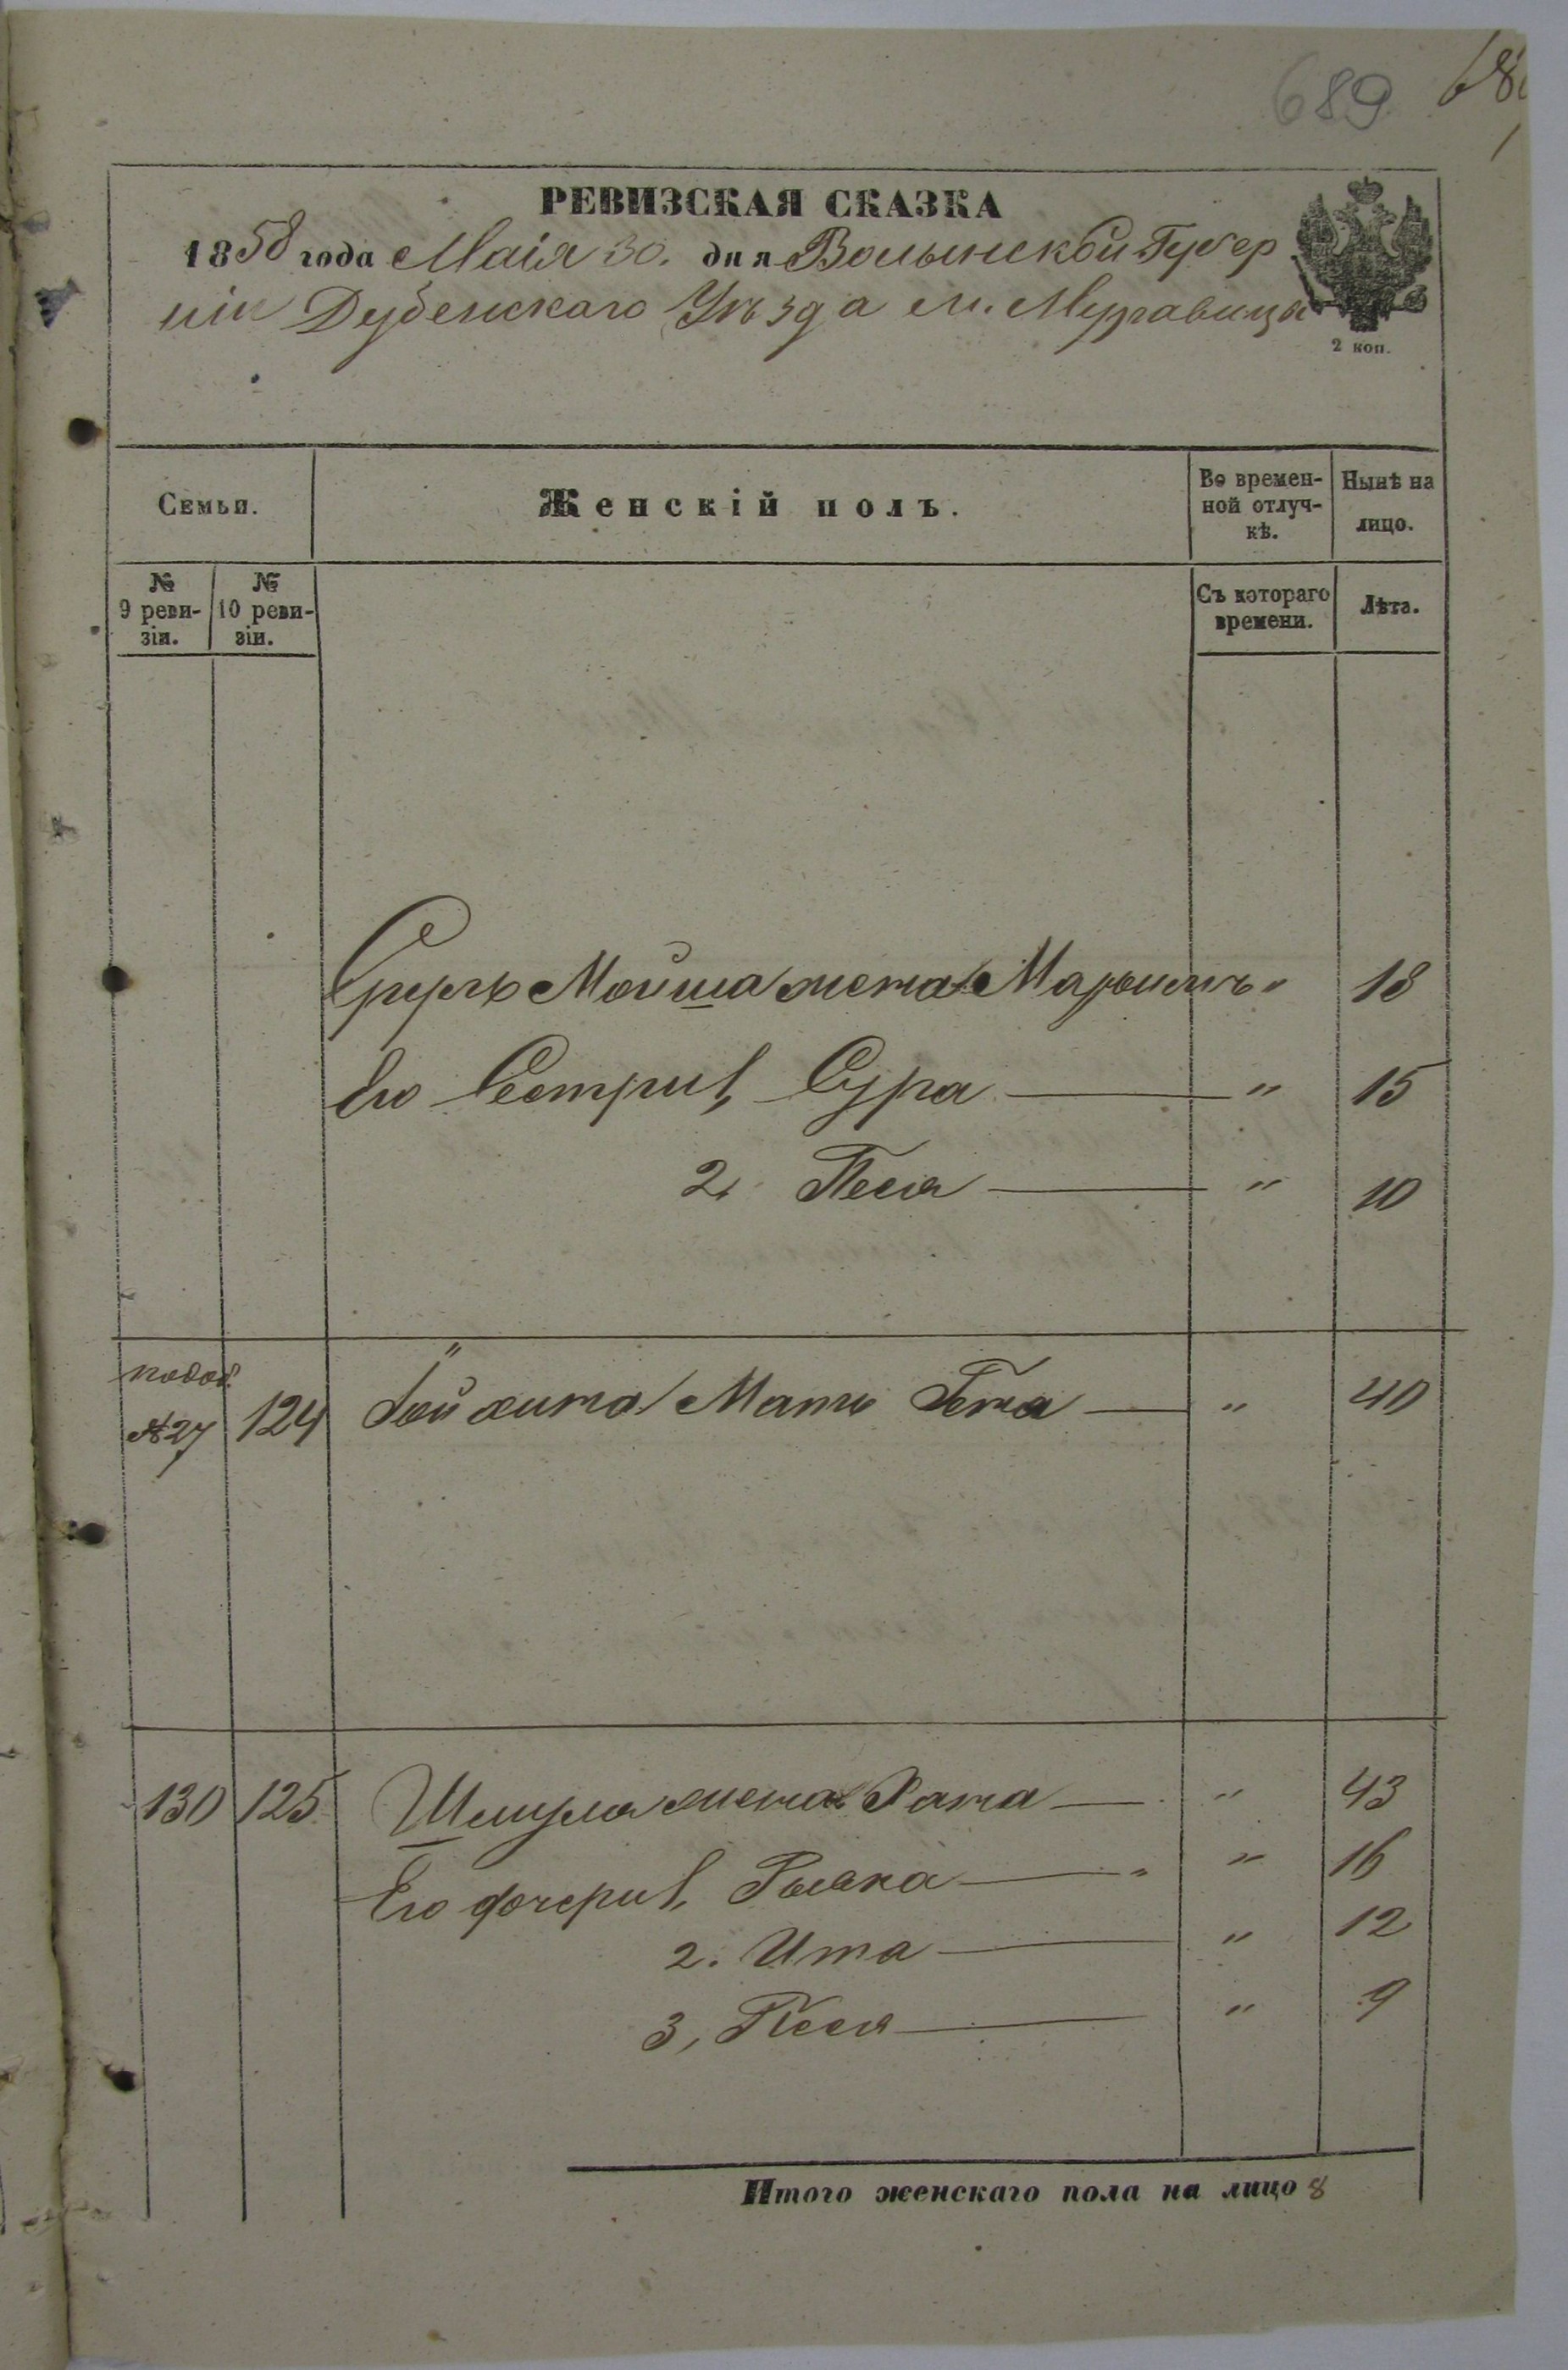 689
РЕВИЗСКАЯ СКАЗКА
1858 года Маія 30. дня Волынской Губер
ніи Дубенскаго Уѣзда м. Муравицы
2 коп.
Семьи.
Женскій полъ.
Во времен-
ной отлуч-
кѣ.
Нынѣ на
лицо.
№
9 реви-
зіи.
№
10 реви-
зіи.
Съ котораго
времени.
Лѣта.
Мойша жена " 18
Его Сестры 1, Сура " 15
2, Песя " 10
№27 124 Мать " 40
130 125 Шмуля жена Хана " 43
Его дочери 1, " 16
2. Ита " 12
3, Песя " 9
Итого женскаго пола на лицо 8